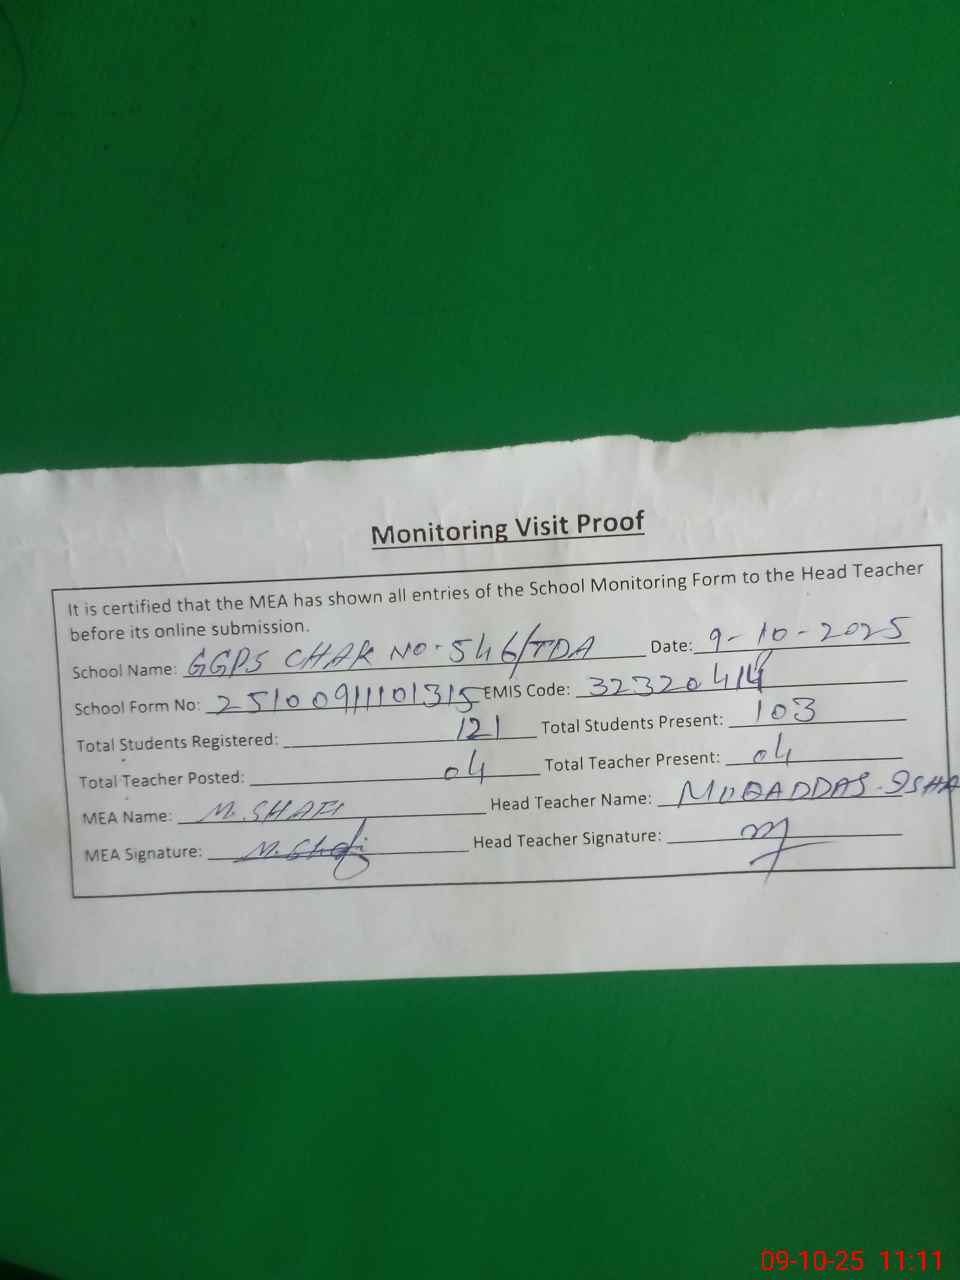 Monitoring Visit Proof
It is certified that the MEA has shown all entries of the School Monitoring Form to the Head Teacher
before its online submission.
School Name: GGPS CHAK NO-546/TDA Date: 9-10-2025
School Form No: 25100911101315 EMIS Code:
Total Students Registered: 121 Total Students Present: 103
Total Teacher Posted: 04 Total Teacher Present: 04
MEA Name: M. SHAFI Head Teacher Name: MUQADDAS. ISHA
MEA Signature: M. Shafi Head Teacher Signature:
09-10-25 11:11